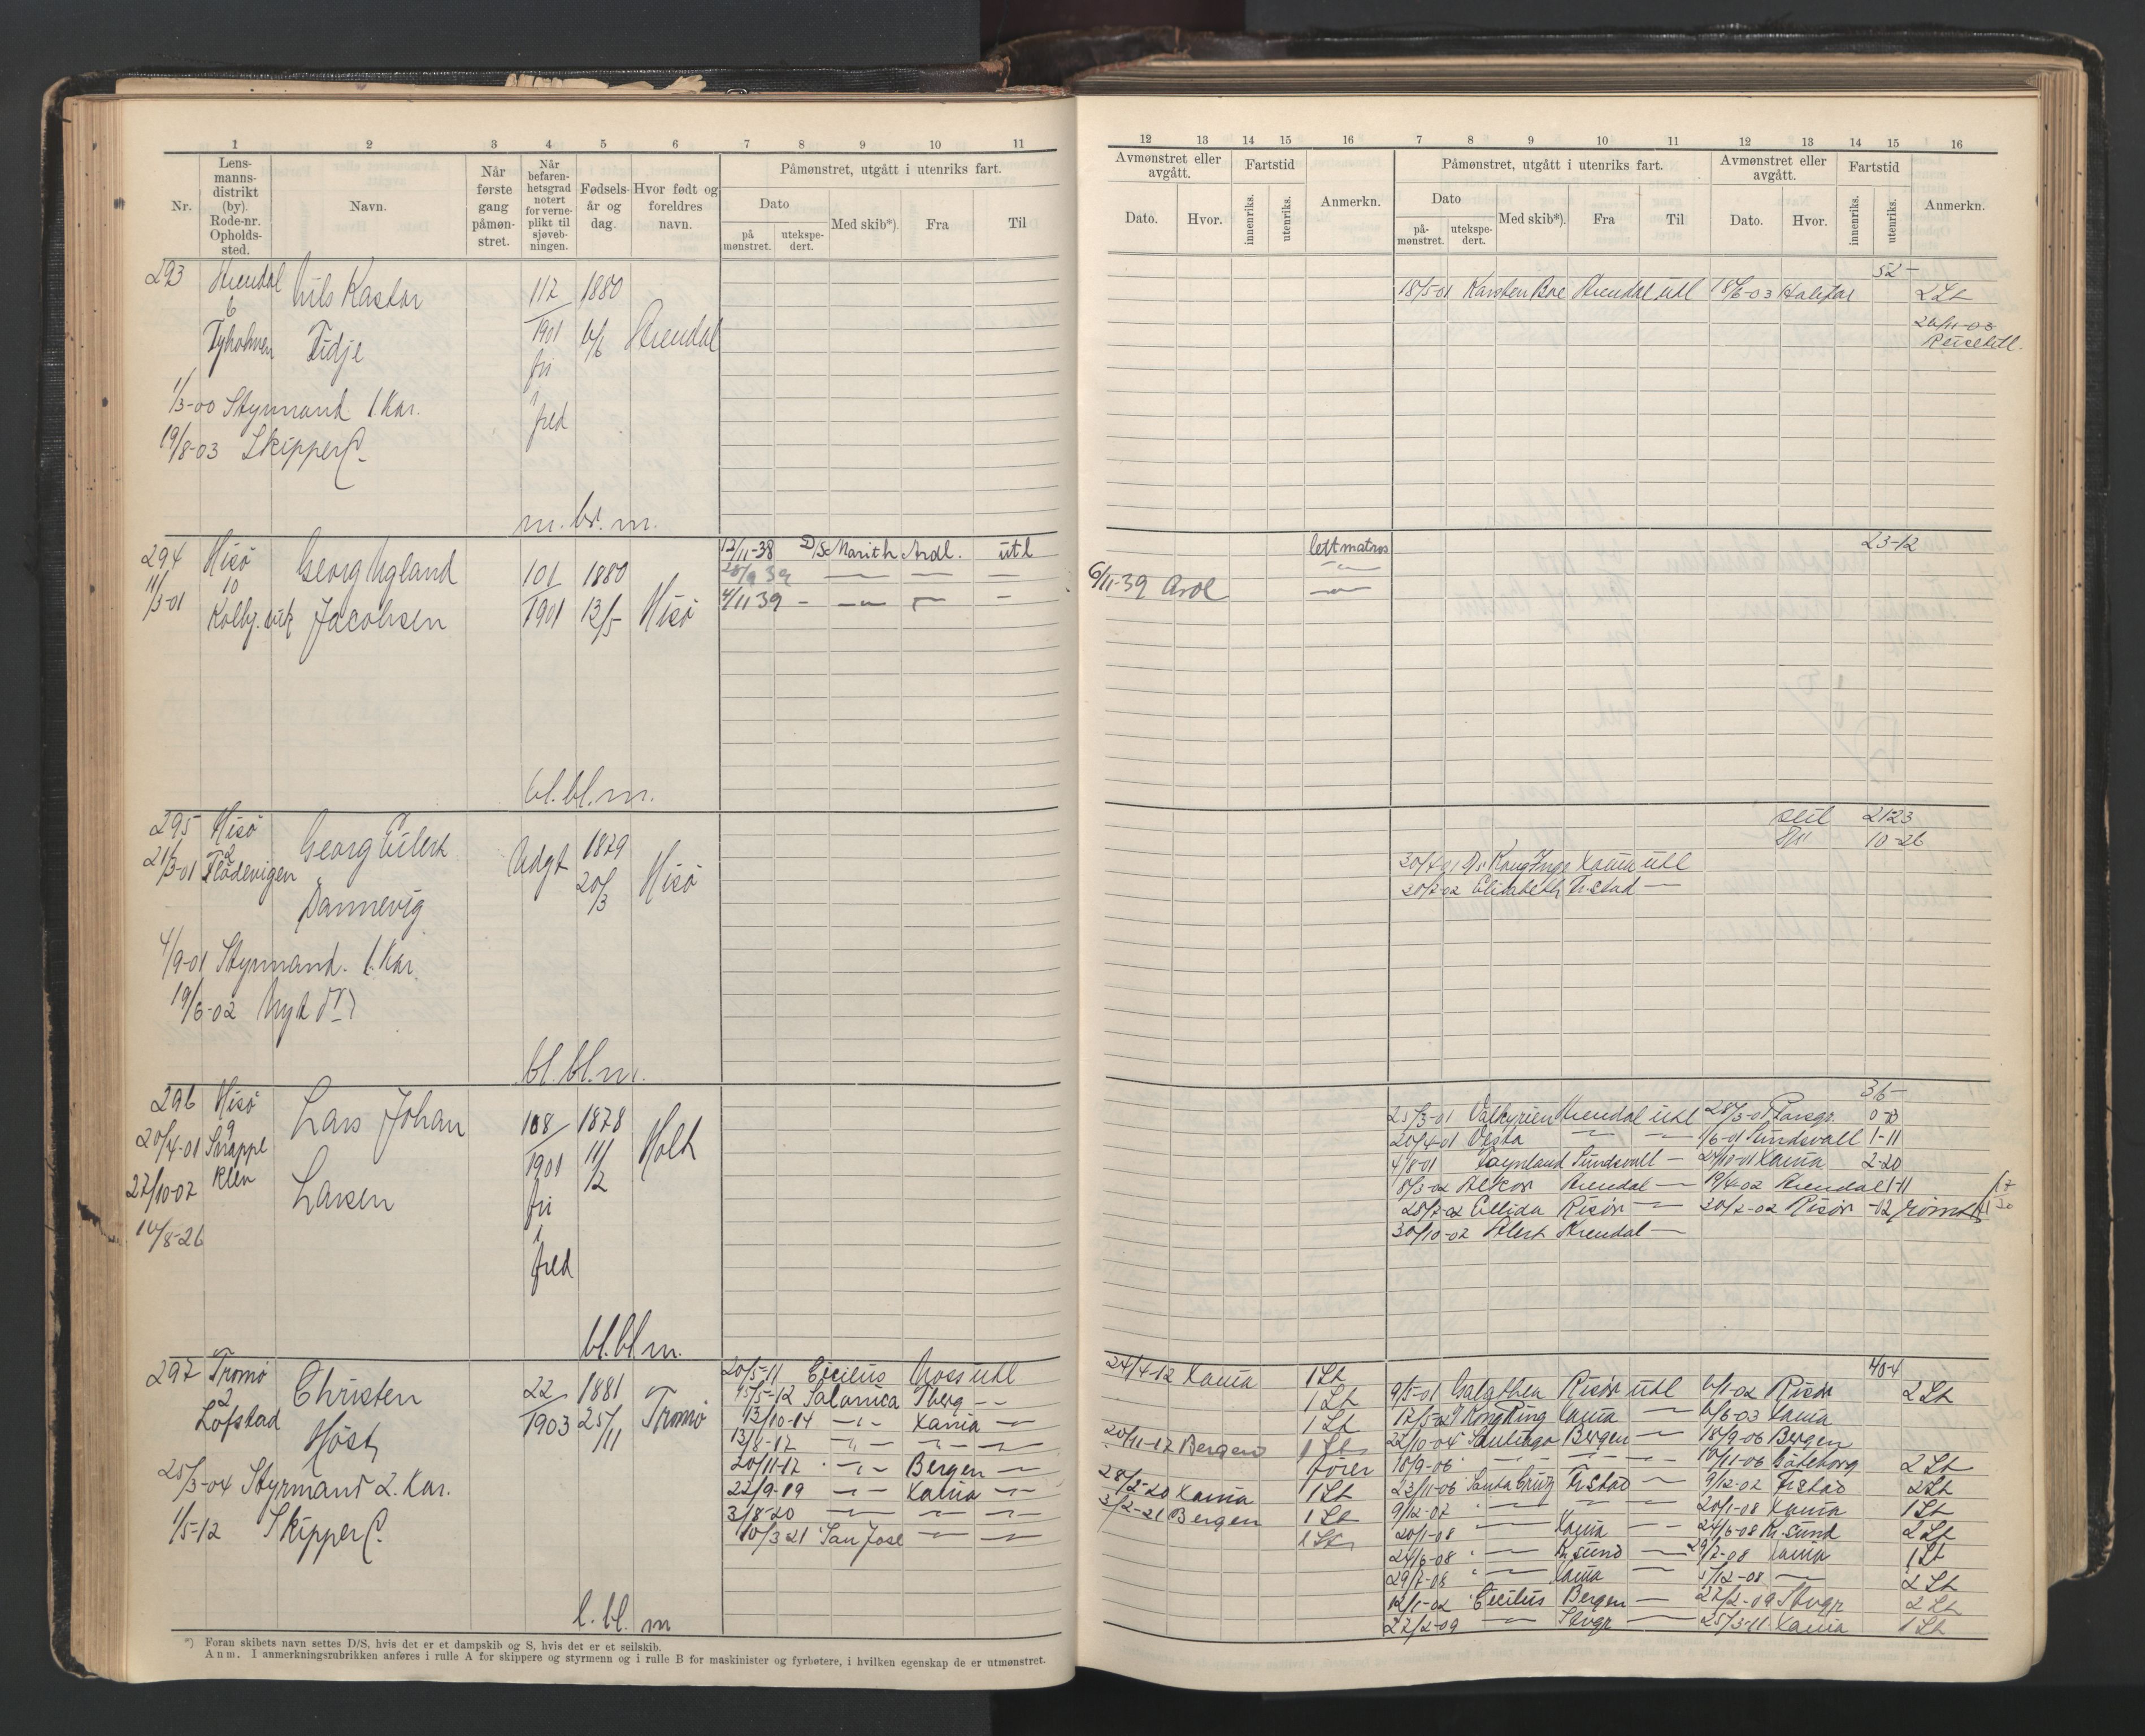 1 2 3 4 5 6 7 8 9 10 11
Nr.
Lens-
manns-
distrikt
(by).
Rode-nr.
Opholds-
sted.
Navn.
Når
første
gang
påmøn-
stret.
Når
befaren-
hetsgrad
notert
for verne-
plikt til
sjøveb-
ningen.
Fødsels-
år og
dag.
Hvor født og
foreldres
navn.
Påmønstret, utgått i utenriks fart.
Dato
på
mønstret.
utekspe-
dert.
Med skib*).
Fra
Til
293 Arendal Nils Kastor 112 1880
6
Tyholmen Tidje 1901 6/6 Arendal
fri
i
1/3-00 Styrmand 1. Kar. fred
19/8-03 Skipper C.
m. br. m.
294 Hisö Georg Ugland 101 1880 12/11-38 D/S Marith Ardl. utl
11/3-01 10 Jacobsen 1901 13/5 Hisö
4/11 39
bl. bl. m.
295 Hisö Georg Eilert Udgt 1879
21/3-01 2 Flödevigen 20/3 Hisö
Dannevig
4/9-01 Styrmand. 1. Kar.
19/6-02 Nyt
bl. bl. m.
296 Hisö Lars Johan 108 1878
20/4-01 9 1901 11/2 Holt
27/10-02 Larsen fri
i
10/8-26 fred
bl. bl. m.
297 Tromö Christen 22 1881 20/5-11 Cicilius Moss utl
2 1903 25/11 Tromö 15/5-12 Salonica Tberg
Löfstad Höst 13/10-14 Xania
13/8-17
20/11-17 Bergen
25/3-04 Styrmand 2. Kar. 22/9-19 Xania
3/8-20
1/5-12 Skipper C. 10/3 21 San Jose
l. bl. m
*) Foran skibets navn settes D/S, hvis det er et dampskib og S, hvis det er et seilskib.
Anm. I anmerkningsrubrikken anføres i rulle A for skippere og styrmenn og i rulle B for maskinister og fyrbøtere, i hvilken egenskap de er utmønstret.
12 13 14 15 16 7 8 9 10 11 12 13 14 15 16
Avmønstret eller
avgått.
Dato.
Hvor.
Fartstid
innenriks.
utenriks.
Anmerkn.
Påmønstret, utgått i utenriks fart.
Dato
på-
mønstret.
utekspe-
dert.
Med skib*).
Fra
Til
Avmønstret eller
avgått.
Dato.
Hvor.
Fartstid
innenriks.
utenriks.
Anmerkn.
52-
18/5-01 Karsten Boe Arendal utl 18/6-03 Halifax 2 St
26/11-03
lettmatros 23-12
6/11-39 Ardl
seil 21-23
10-26
30/4-01 D/s Kong Inge Xania utl
Elisabeth Fr.stad
36-
25/3-01 Valkyrien Arendal utl 28/3-01
20/4-01 Vesta 1/6-01 Sundsvall 1-11
4/8-01 Sundsvall 24/10-01 Xania 2-20
8/3-02 Alkor Arendal 19/4-02 Arendal 1-11
28/7-02 Ellida Risör 30/7-02 Risör
30/10-02 Alert Arendal
40-4
24/4-12 Xania 1 St
1 St 9/5-01 Galathea Risör utl 6/1-02 Risör 2 St
1 St 17/5-02 Kong Ring Xania 6/6-03 Xania
20/11-17 Bergen 1 St 22/10-04 Santiago Bergen 18/9-06 Bergen
förer 18/9-06 19/11-06 Göteborg 2 St
28/2-20 Xania 1 St 23/11-06 Santa Cruz Fr.stad 9/12-07 Fr.stad 2 St
3/2-21 Bergen 1 St 9/12-07 20/1-08 Xania 1 St
1 St 20/1-08 Xania 24/6-08 Kr.sund 2 St
24/6-08 Kr.sund 29/7-08 Xania 1 St
29/7-08 Xania 5/12-08 2 St
Cecilius Bergen 27/2-09 Stvgr 2 St
27/2-09 Stvgr 25/3-11 Xania 1 St